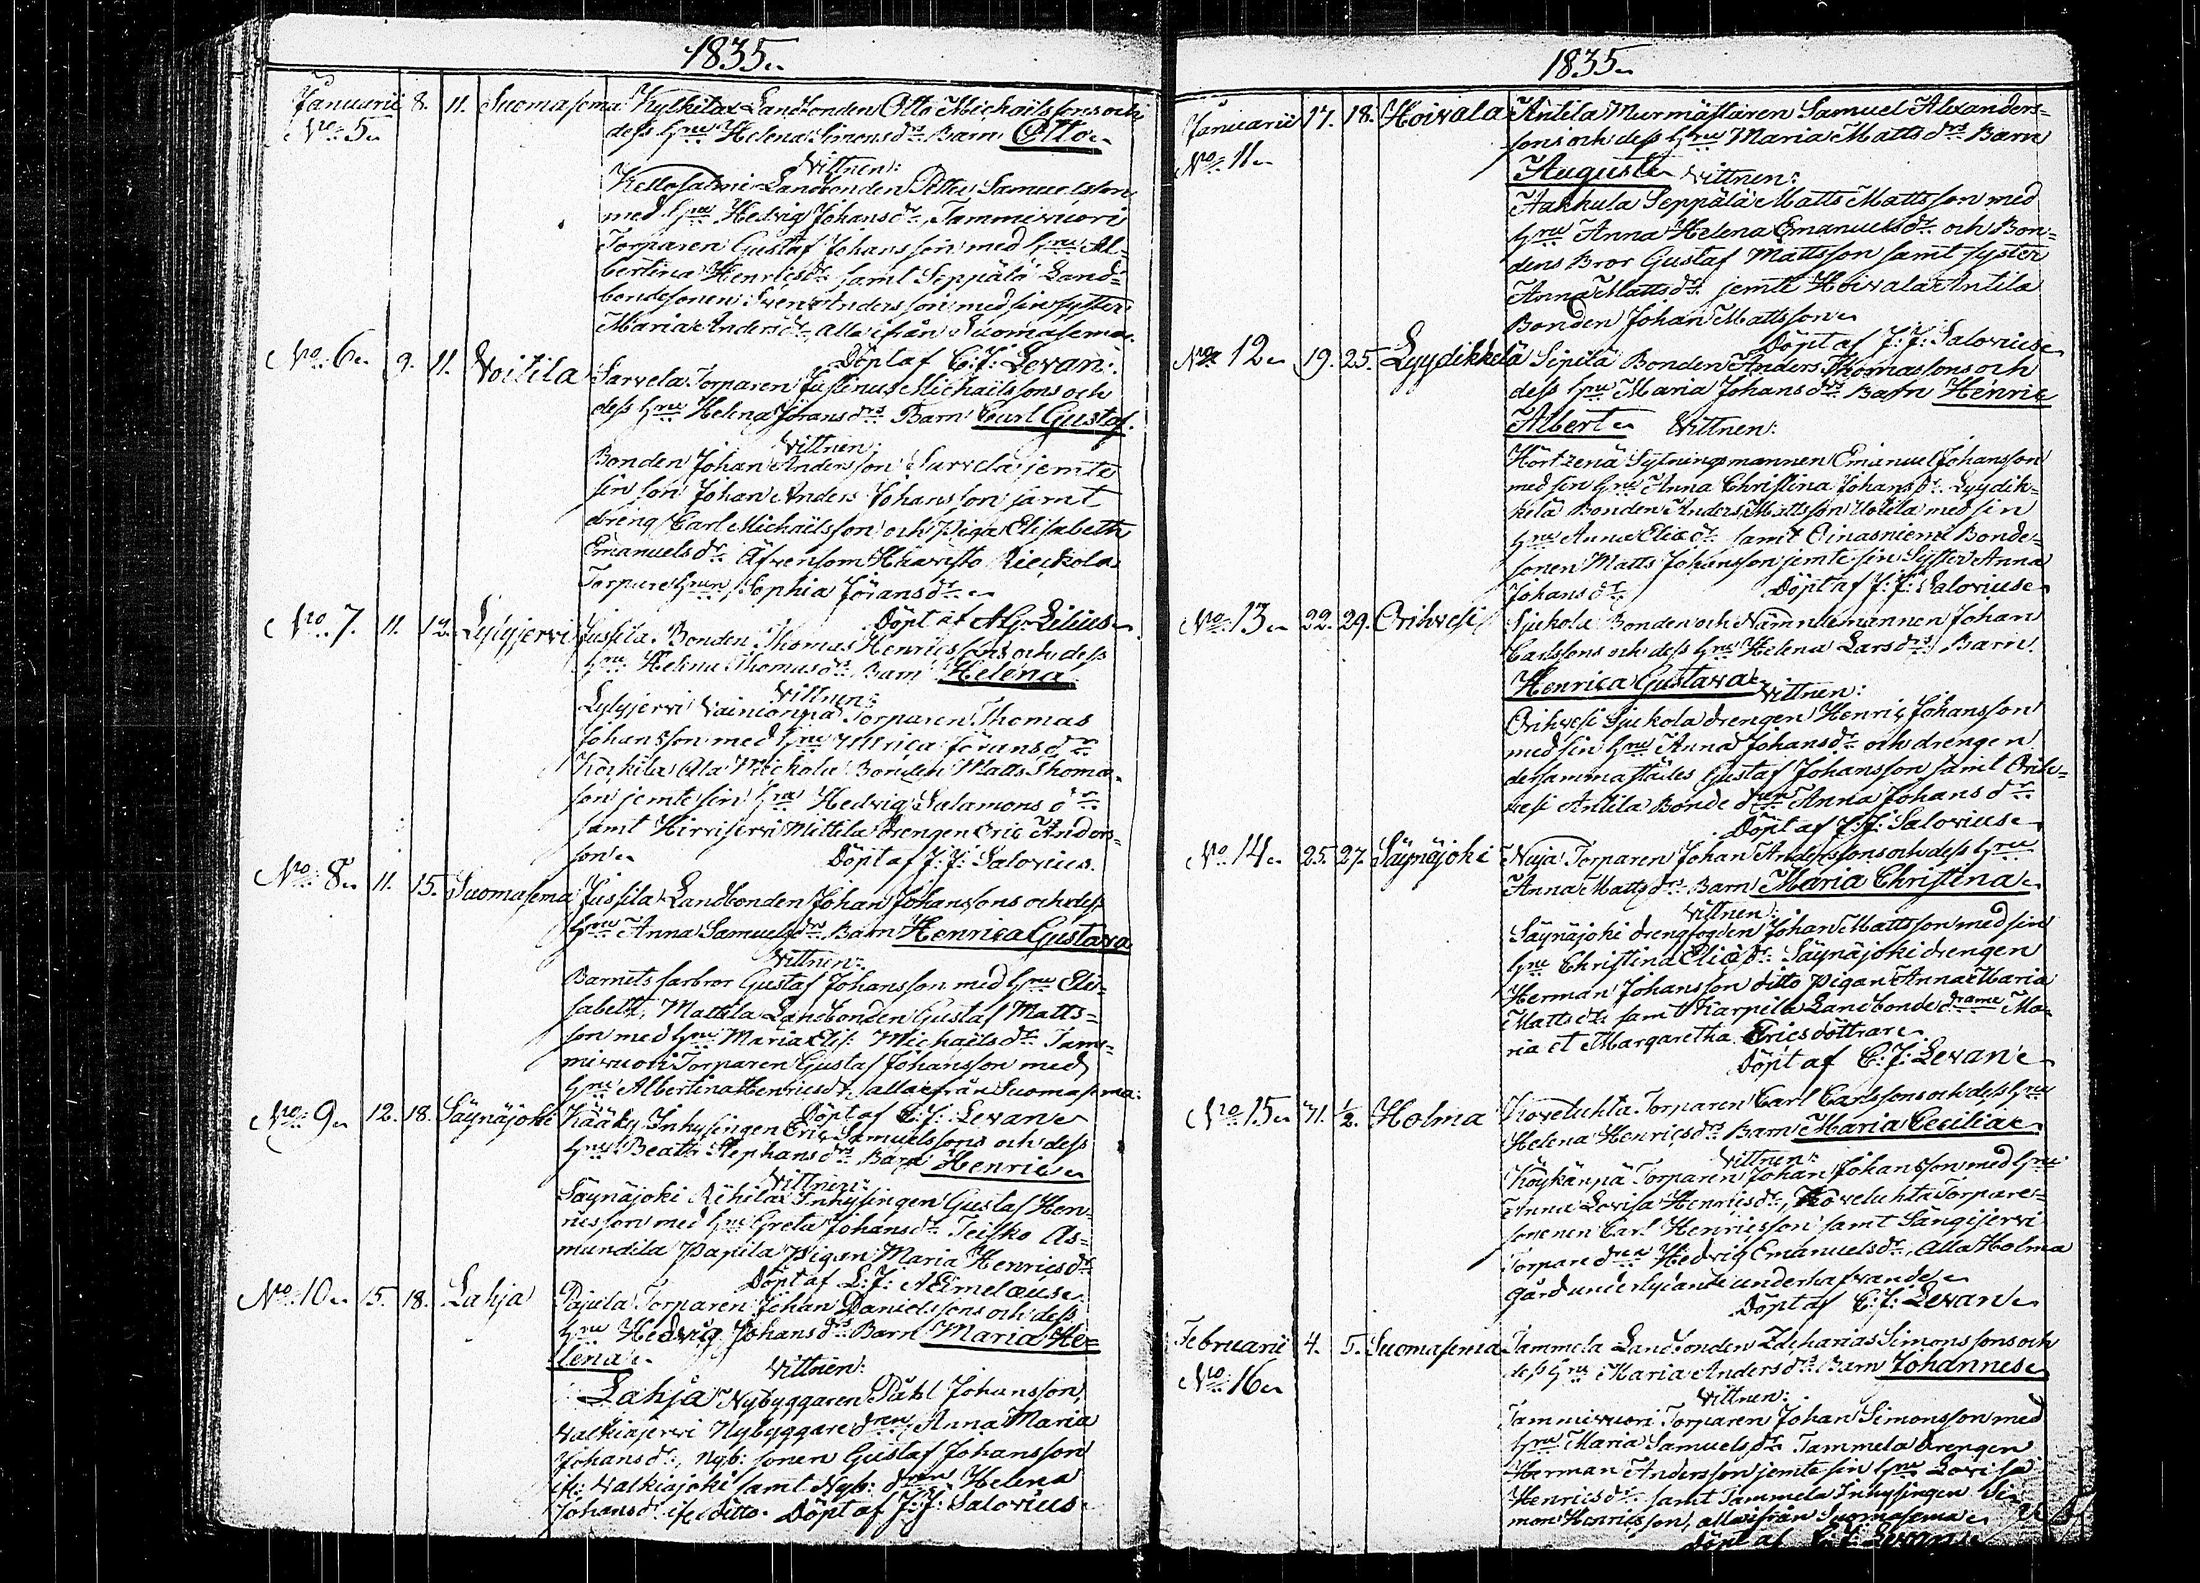 1835.
Januarii 8. 11. Suomasema Kylkilä Landbonden Otto Michaëlssons och
No 5. dess Hru Helena Simonsdrs Barn Otto
Vittnen:
Kellosalmi Landbonden Petter Samuelsson
med Hru Hedvig Johansdr, Tammivuori
Torparen Gustaf Johansson med Hru Al-
bertina Henricsdr samt Seppälä Land-
bondesonen Sven Andersson med sin syster
Maria Andersdr alla ifrån Suomasema.
Döpt af C: J: Levan.
No 6. 9. 11. Voitila Sarvela Torparen Justinus Michaëlssons och
dess Hru Helena Jöransdrs Barn Carl Gustaf.
Vittnen:
Bonden Johan Andersson Sarvela jemte
sin son Johan Anders Johansson samt
dreng Carl Michaëlsson och Piga Elisabeth
Emanuelsdr äfvensom Haavisto Rieckola
Torpare Hrun Sophia Jöransdr
Döpt af A G Lilius
No 7. 11. 12. Lylyjervi Jussila Bonden Thomas Henricssons och dess
Hru Helena Thomasdrs Barn Helena
Vittnen:
Lylyjervi Vainionpä Torparen Thomas
Johansson med Hru Ulrica Jöransdr
Köykilä Ala Mickola Bonden Matts Thoma-
son jemte sin Hru Hedvig Salamonsdr
samt Hirvijervi Mittila Drengen Eric Anders-
son
Döpt af J: J: Salovius.
No 8. 11. 15. Suomasema Jussila Landbonden Johan Johanssons och dess
Hru Anna Samuelsdrs Barn Henrica Gustava
Vittnen:
Barnets farbror Gustaf Johansson med Hru Eli-
sabeth, Mattila Landbonden Gustaf Matts-
son med Hru Maria Elis: Michaëlsdr Tam-
mivuori Torparen Gustaf Johansson med
Hru Albertina Henricsdr alla ifrån Suomasema.
Döpt af C: J: Levan
No 9. 12. 18. Säynäjoki Kääky Inhysingen Eric Samuelssons och dess
Hru Beata Stephansdrs Barn Henric
Vittnen:
Säynäjoki Rihilä Inhysingen Gustaf Hen-
ricsson med Hru Greta Johansdr Teisko As-
mundila Papila Pigan Maria Henricsdr
Döpt af L: J: Aëimelæus
No 10. 15. 18. Lahja Pajula Torparen Johan Danielssons och dess
Hru Hedvig Johansdrs Barn Maria He-
lena
Vittnen:
Lahja Nybyggaren Påhl Johansson,
Valkiajervi Nybyggare dren Anna Maria
Johansdr, Nyb: sonen Gustaf Johansson
ifr: Valkiajoki samt Nyb: dren Helena
Johansdr ifr ditto. Döpt af J: J: Salovius
1835
Januarii 17. 18. Hoivala Antila Murmästaren Samuel Alexanders-
No 11. sons och dess Hru Maria Mattsdrs Barn
August Vittnen:
Aakkula Seppälä Matts Mattsson med
Hru Anna Helena Emanuelsdr och Bon-
dens Bror Gustaf Mattsson samt syster
Anna Mattsdr jemte Hoivala Antila
Bonden Johan Mattsson
Döpt af J: J: Salovius
No 12. 19. 25. Lyydikkelä Sipilä Bonden Anders Thomassons och
dess Hru Maria Johansdrs Barn Henric
Albert Vittnen:
Hörtzenä Sytningsmannen Emanuel Johansson
med sin Hru Anna Christina Johansdr Lyydik-
kelä Bonden Anders Mattsson Uotila med sin
Hru Anna Eliædr samt Oinasniemi Bonde-
sonen Matts Johansson jemte sin Syster Anna
Johansdr
Döpt af J: J: Salovius
No 13. 22. 29. Orihvesi Sjukola Bonden och Nämndemannen Johan
Carlssons och dess Hru Helena Larsdrs Barn
Henrica Gustava Vittnen:
Orihvesi Sjukola drengen Henric Johansson
med sin Hru Anna Johansdr och drengen
dersammastädes Gustaf Johansson samt Orih-
vesi Antila Bonde dren Anna Johansdr
Döpt af J: J: Salovius
No 14. 25. 27. Säynäjoki Naja Torparen Johan Anderssons och dess Hru
Anna Mattsdrs Barn Maria Christina
Vittnen:
Säynäjoki drengfogden Johan Mattsson med sin
Hru Christina Eliædr Säynäjoki drengen
Herman Johansson ditto Pigan Anna Maria
Mattsdr samt Karpila Landbonde drarne Ma-
ria et Margaretha Ericsdöttrar
Döpt af C: J: Levan
No 15. 31. 1/2. Holma Koveluhta Torparen Carl Carlssons och dess Hru
Helena Henricsdrs Barn Maria Cecilia
Vittnen:
Köykänpä Torparen Johan Johansson med Hru
Anna Lovisa Henricsdr, Koveluhta Torpare-
sonen Carl Henricsson samt Sängijervi
Torpare dren Hedvig Emanuelsdr, Alla Holma
gård underlydande underhafvande
Döpt af C: J: Levan
Februarii 4. 5. Suomasema Tammela Landbonden Zacharias Simonssons och
No 16. dess Hru Maria Andersdrs Barn Johannes
Vittnen:
Tammivuori Torparen Johan Simonsson med
Hru Maria Samuelsdr Tammela Drengen
Herman Andersson jemte sin Hru Lovisa
Henricsdr samt Tammela Inhysingen Si-
mon Henricsson, alla ifrån Suomasema
Döpt af C: J: Levan